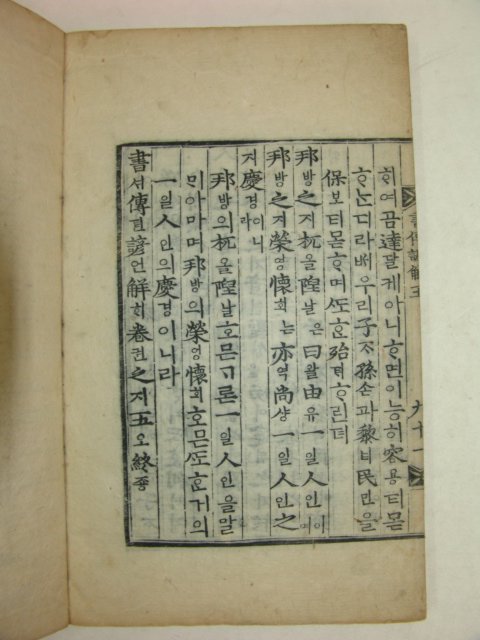 書傳諺解五 九十一
ᄒᆞ여곰達달케아니ᄒᆞ면이能능히容용티몯
ᄒᆞᄂᆞ디라ᄡᅥ우리子ᄌᆞ孫손과黎려民민을
保보티몯ᄒᆞ며ᄯᅩᄒᆞᆫ殆ᄐᆡᄒᆞ린뎌
邦방之지杌올隉날은曰왈由유一일人인이며
邦방之지榮영懷회ᄂᆞᆫ亦역尙샹一일人인之
지慶경이니라
邦방의杌올隉날호믄ᄀᆞ론一일人인을말
ᄆᆡ아마며邦방의榮영懷회호믄ᄯᅩᄒᆞᆫ거의
一일人인의慶경이니라
書셔傳뎐諺언解ᄒᆡ卷권之지五오終죵